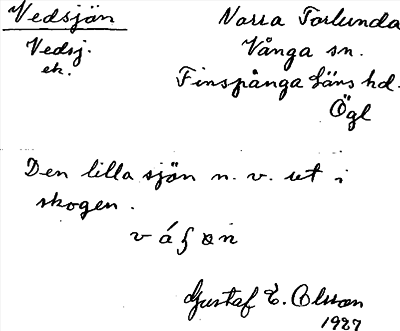 Vedsjön
Vedsj.
ek.
Norra Torlunda
Vånga sn.
Finspånga läns hd.
Ögl
Den lilla sjön n. v. ut i
skogen.
Gustaf E. Olsson
1927